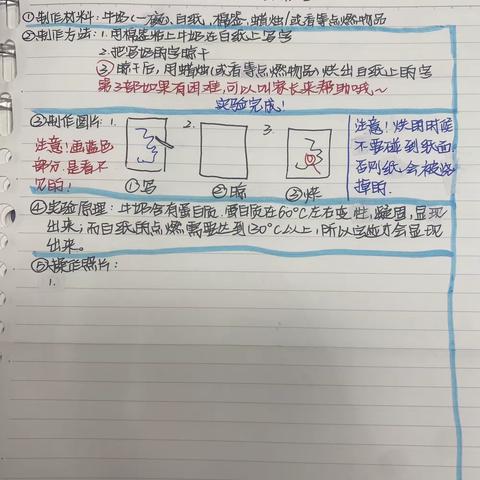 ①制作材料:牛奶(一滴)、白纸、棉签、蜡烛/或者等点燃物品
②制作方法:1.用棉签粘上牛奶在白纸上写字
2.把写好的字晾干
③晾干后,用蜡烛(或者等点燃物品)烘出白纸上的字
第3部如果有困难,可以叫家长来帮助哦~
实验完成!
③制作图片:1. 2. 3.
注意!画蓝色部分是看不见的!
①写 ②晾 ③烘
注意!烘的时候不要碰到纸面否则纸会被烧掉的.
④实验原理:牛奶含有蛋白质.蛋白质在60°C左右变性,凝固,显现
出来;而白纸的点燃需要达到130°C以上,所以字迹才会显现
出来.
⑤操作照片:
1.